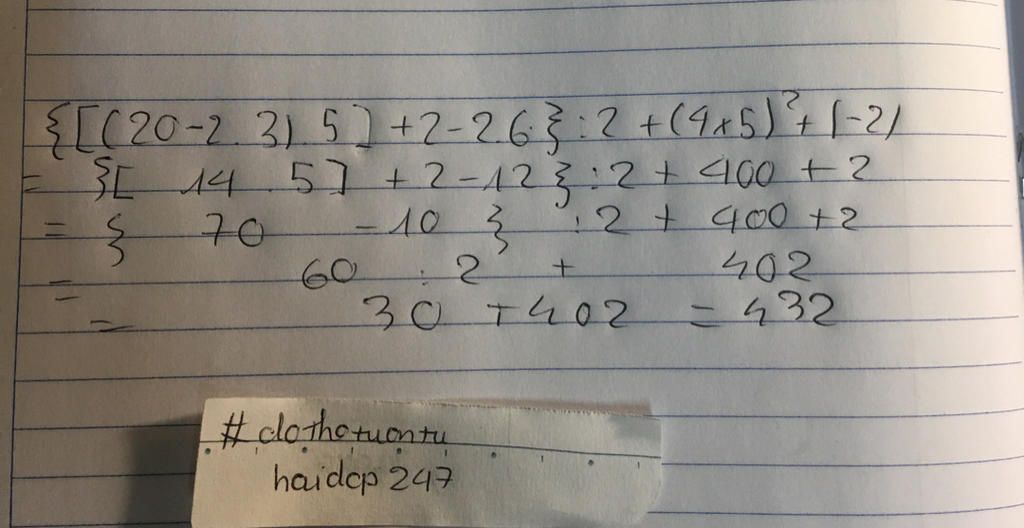 {[(20-2.3).5]+2-2.6}:2+(4×5)²+|-2|
= {[ 14 . 5] + 2 -12} :2 + 400 + 2
= { 70 -10 } :2 + 400 +2
= 60 : 2 + 402
= 30 +402 = 432
# clothotuontu
haidcp 247